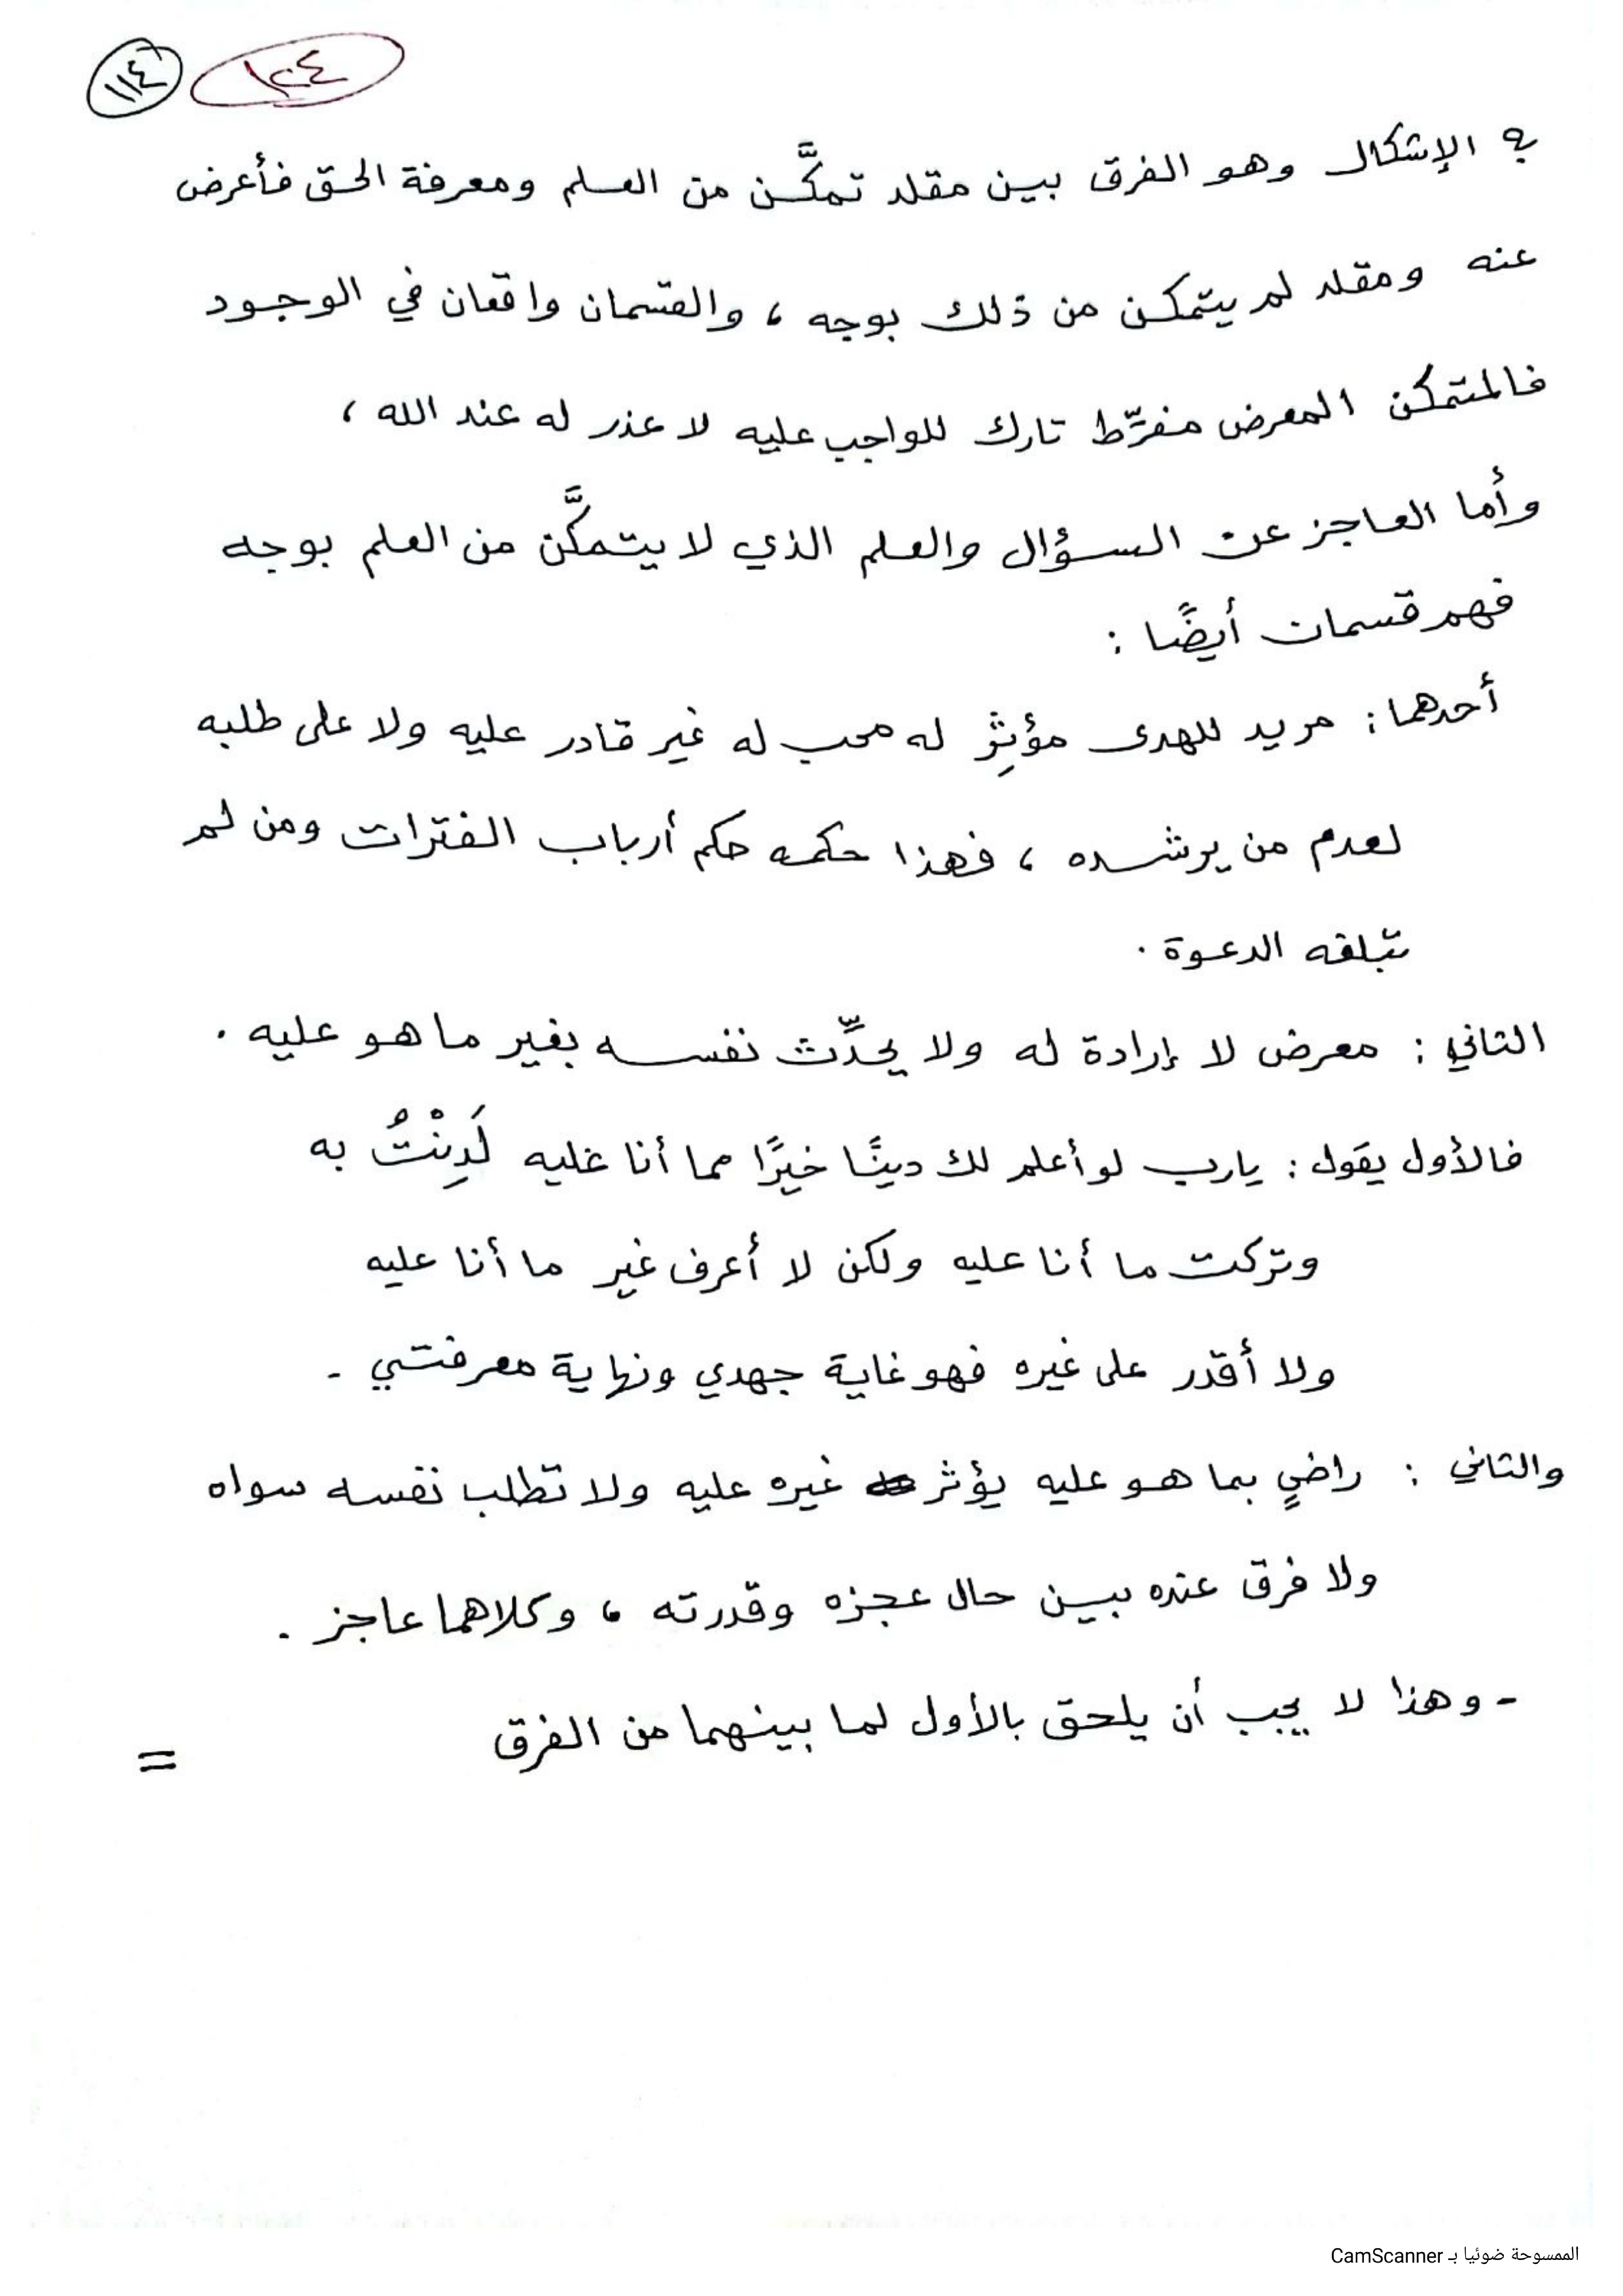 ١٢٤ ١١٤
به الإشكال وهو الفرق بين مقلد تمكَّن من العلم ومعرفة الحق فأعرض
عنه ومقلد لم يتمكن من ذلك بوجه ، والقسمان واقعان في الوجود
فالمتمكن المعرض مفرّط تارك للواجب عليه لا عذر له عند الله ،
وأما العاجز عن السؤال والعلم الذي لا يتمكَّن من العلم بوجه
فهم قسمان أيضًا :
أحدهما : مريد للهدى مؤثِر له محب له غير قادر عليه ولا على طلبه
لعدم من يرشده ، فهذا حكمه حكم أرباب الفترات ومن لم
تبلغه الدعوة .
الثاني : معرض لا إرادة له ولا يحدِّث نفسه بغير ما هو عليه .
فالأول يقول : يارب لو أعلم لك دينًا خيرًا مما أنا عليه لَدِنْتُ به
وتركت ما أنا عليه ولكن لا أعرف غير ما أنا عليه
ولا أقدر على غيره فهو غاية جهدي ونهاية معرفتي -
والثاني : راضيٍ بما هو عليه يؤثر غيره عليه ولا تطلب نفسه سواه
ولا فرق عنده بين حال عجزه وقدرته ، وكلاهما عاجز .
- وهذا لا يجب أن يلحق بالأول لما بينهما من الفرق
=
الممسوحة ضوئيا بـ CamScanner